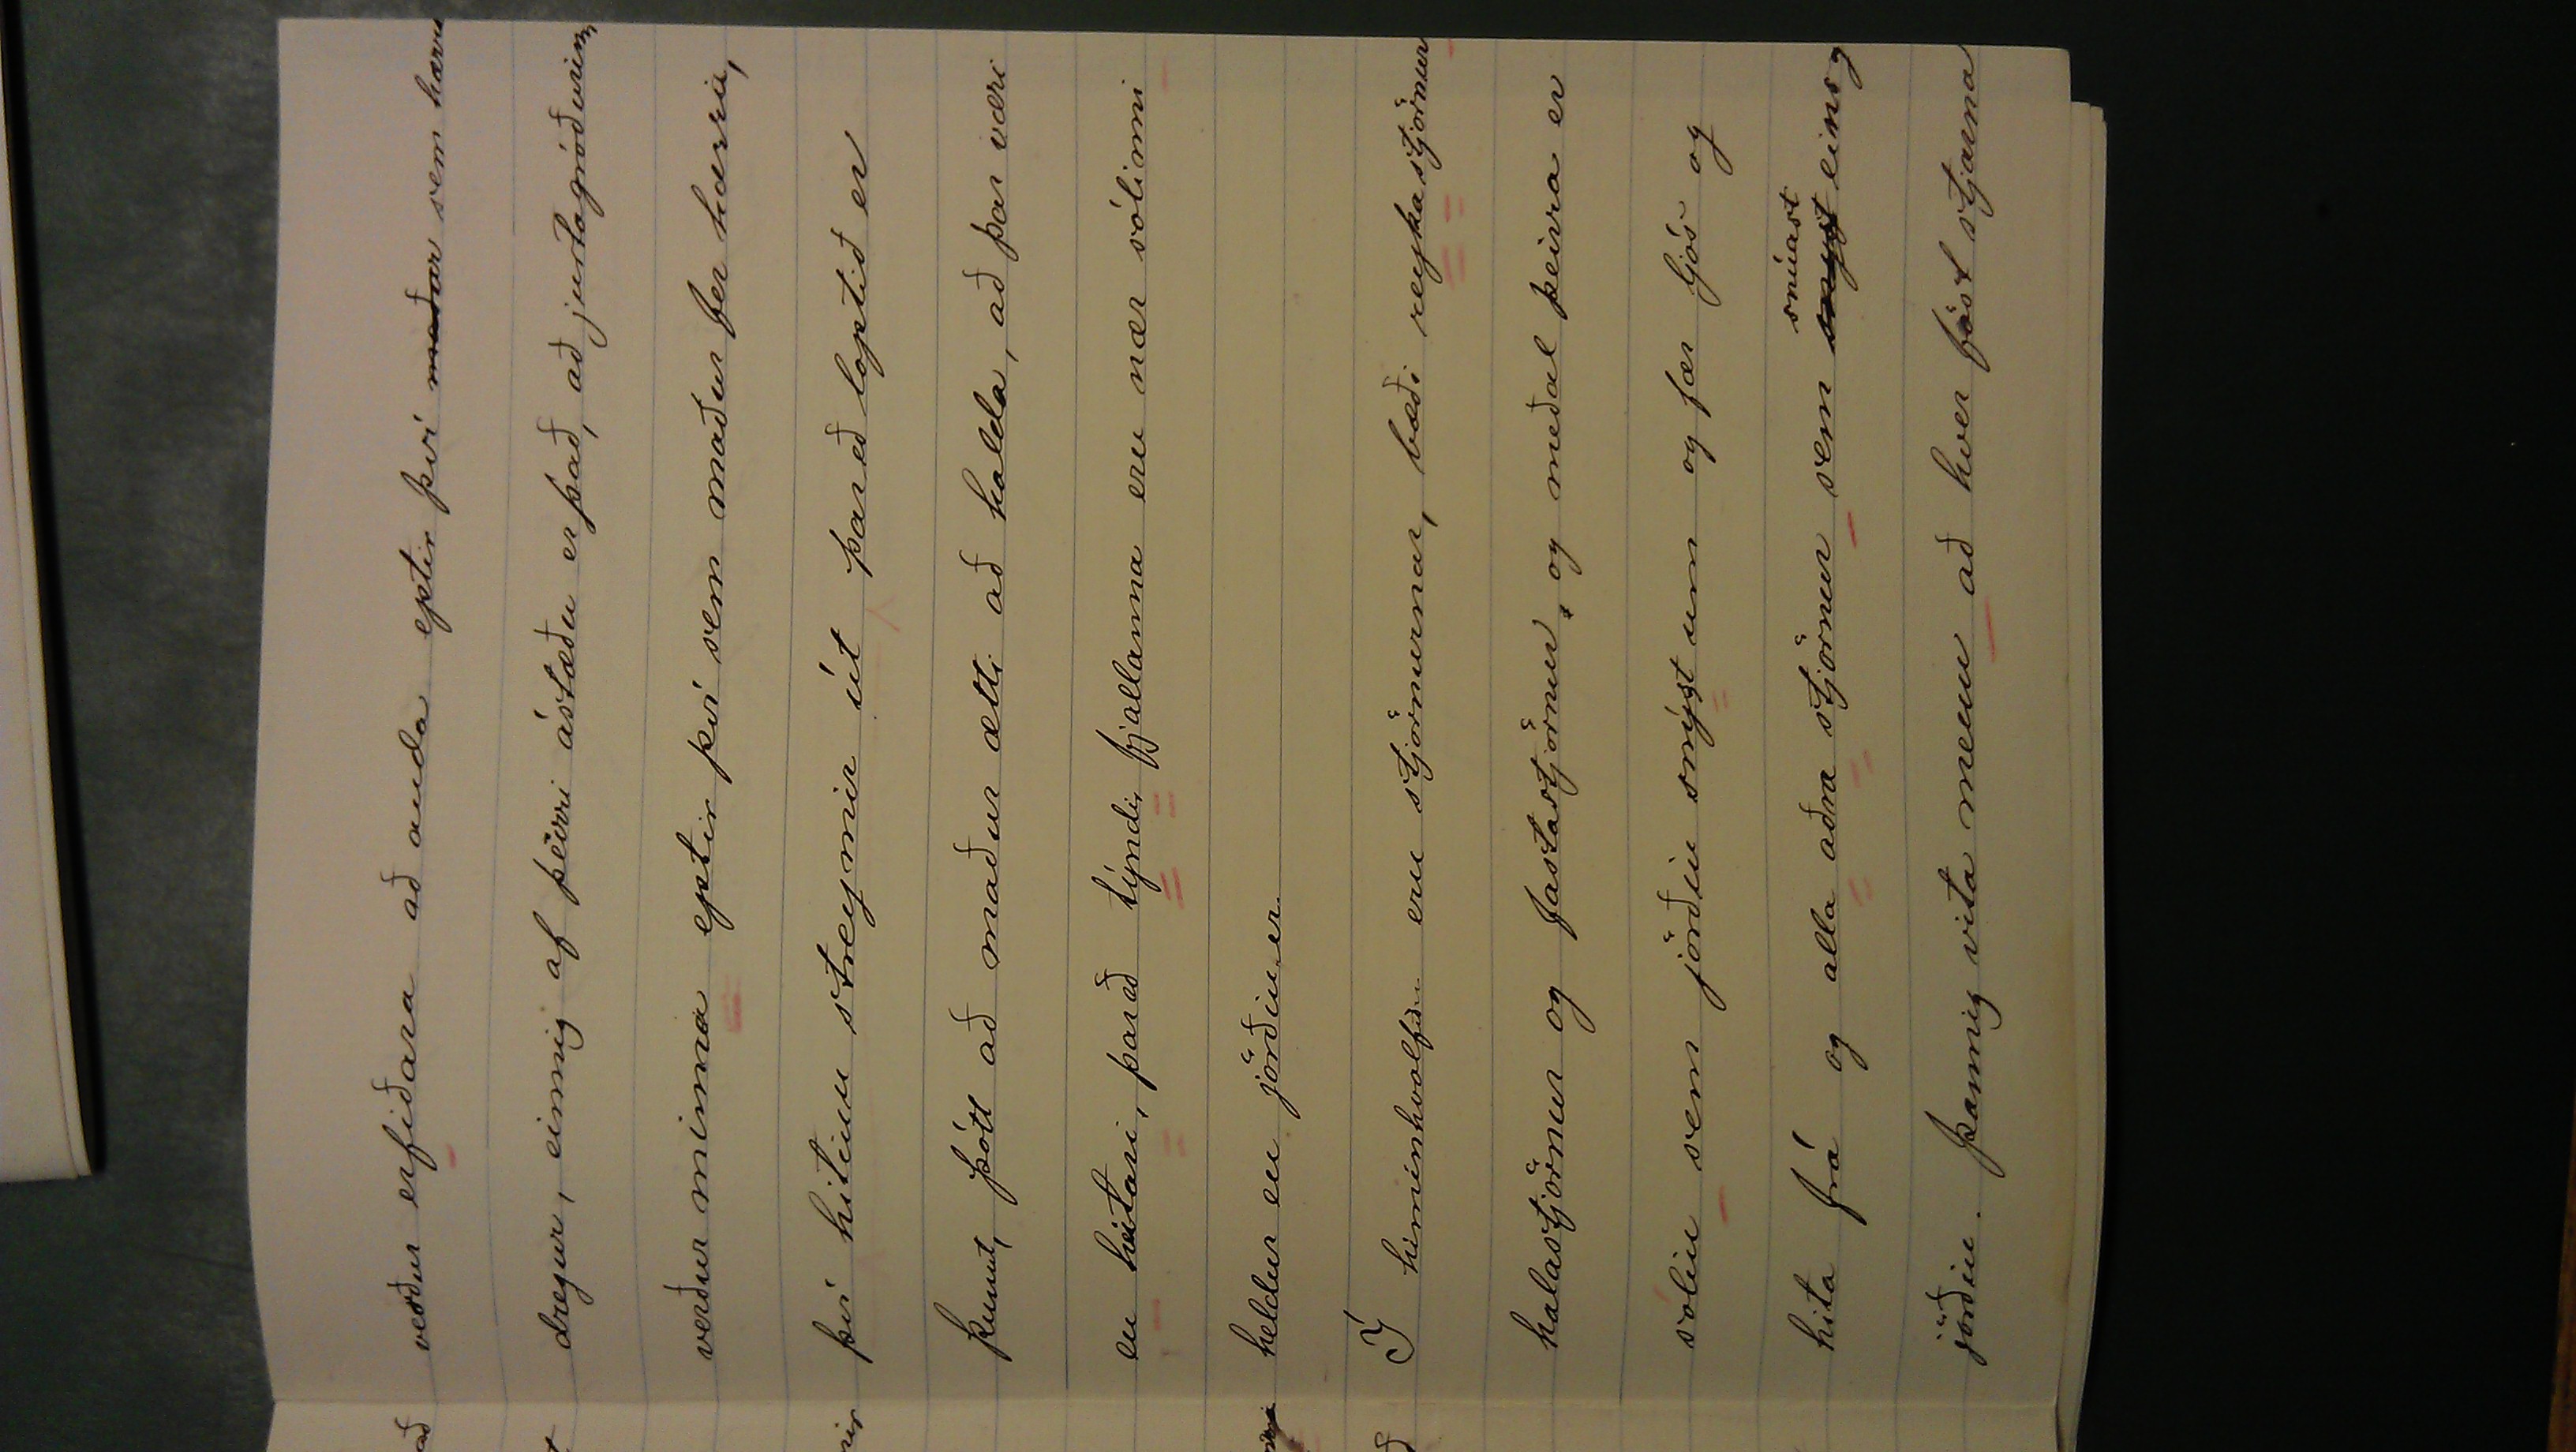 verður erfiðara að anda eptir því maðar sem hærra
dregur, einnig af þeirri ástæðu er það, að jurtagróðurinn
verður minna eptir því sem maður fer hærra,
því hitinn streymir út þareð loptið er
þunnt, þótt að maður ætti að halda, að þar væri
en heitari, þarað týndi, fjallanna eru nær sólinni
heldur en jörðin er.
Í himinhvolfinu eru stjörnurnar, bæði reykastjörnur
halastjörnur og fastastjörnur, og meðal þeirra er
sólin sem jörðin snýst um og fær ljós og
snúast
hita frá og alla aðra stjörnur sem snýst eins og
jörðin. Þannig vita menn að hver föst stjarna